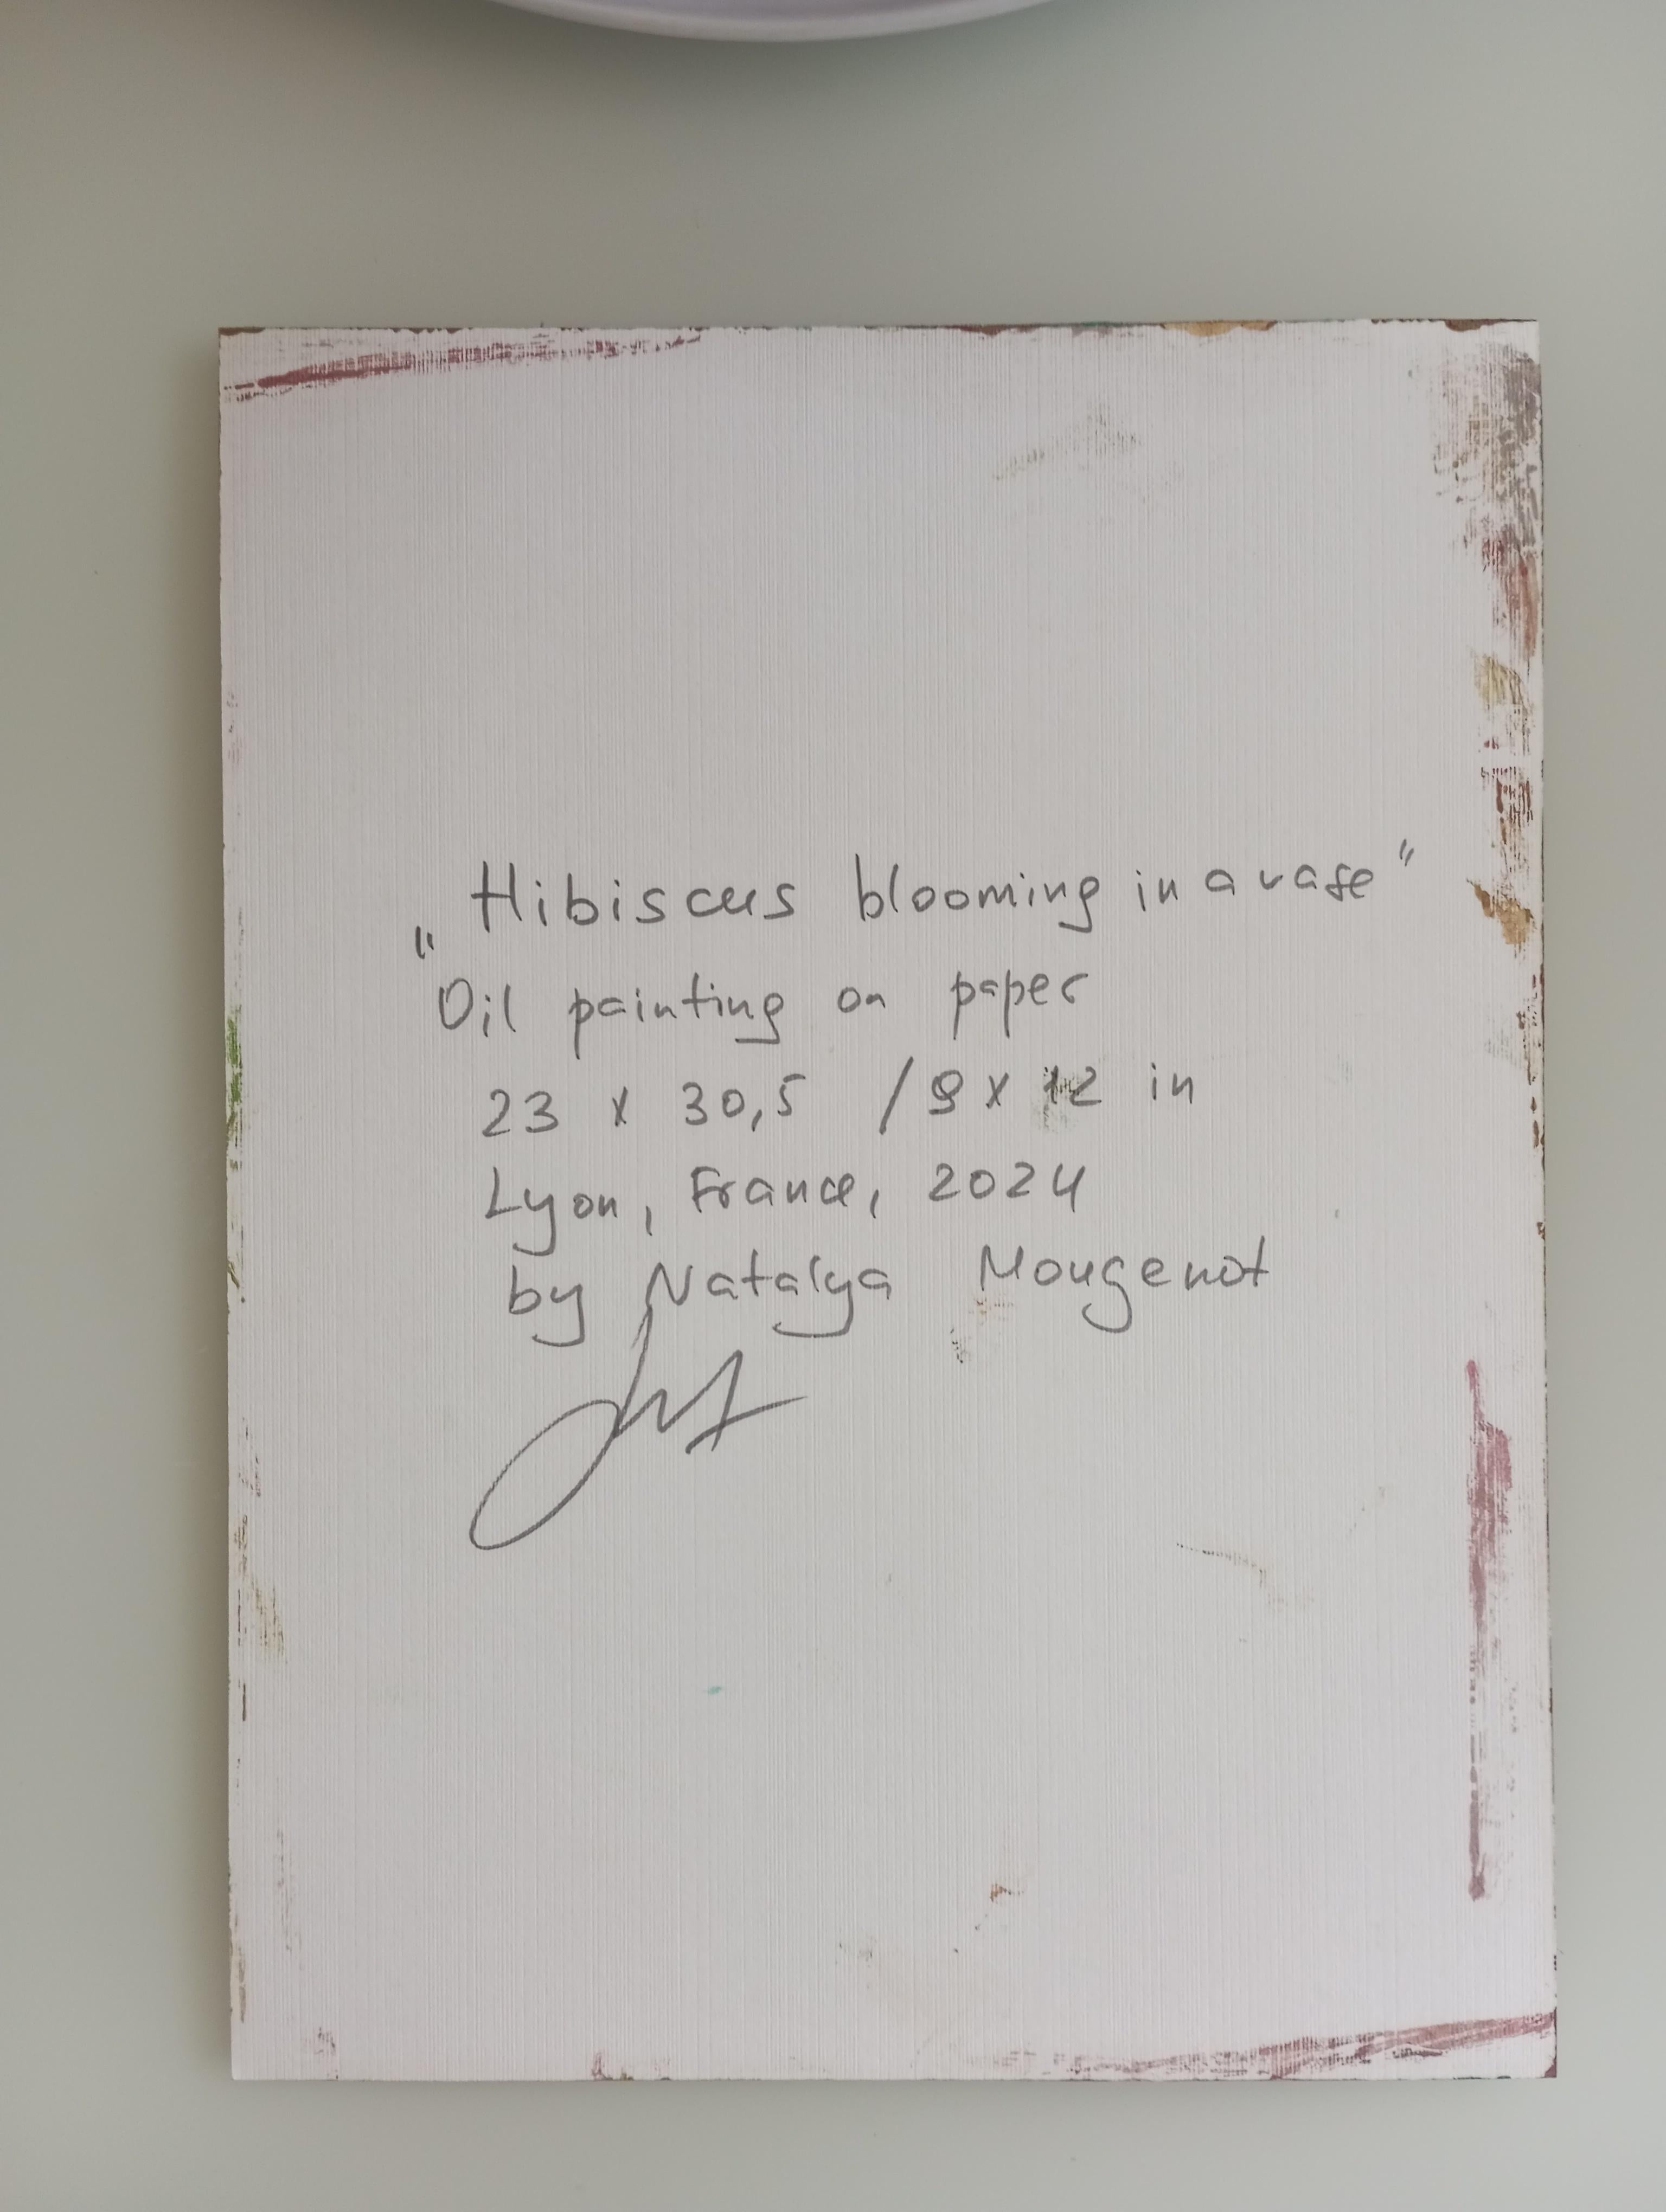 „Hibiscus blooming in a vase"
Oil painting on paper
23 x 30,5 / 9 x 12 in
Lyon, France, 2024
by Natalya Mougenot